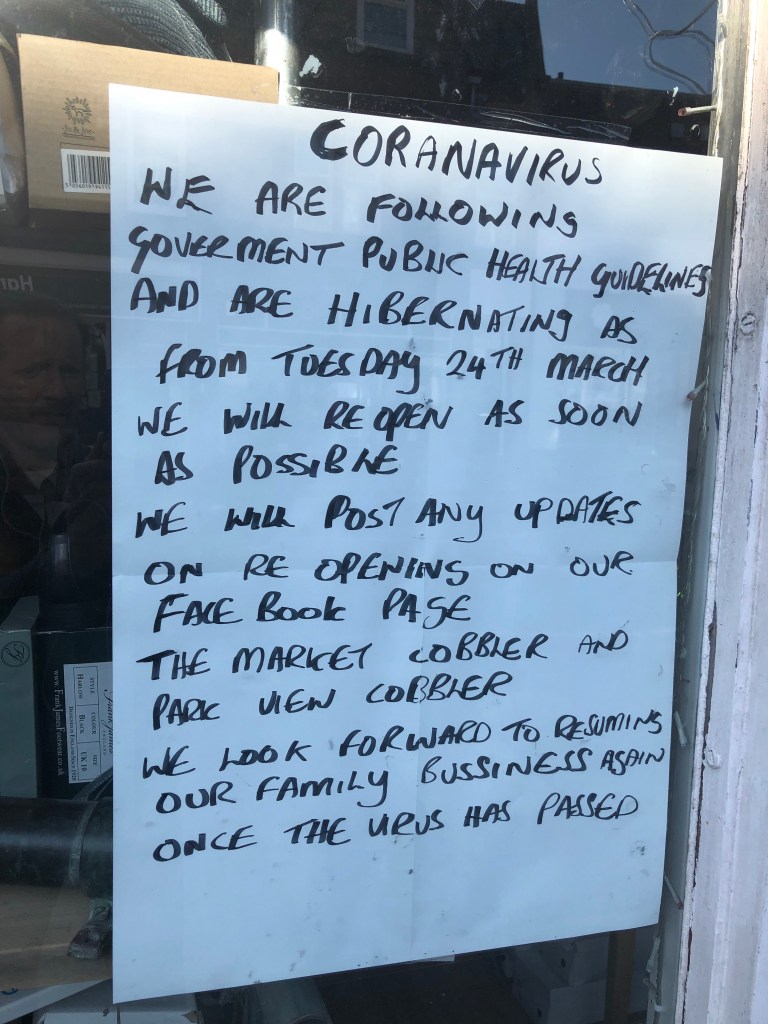 CORANAVIRUS
WE ARE FOLLOWING
GOVERMENT PUBLIC HEALTH GUIDELINES
AND ARE HIBERNATING AS
FROM TUESDAY 24TH MARCH
WE WILL RE OPEN AS SOON
AS POSSIBLE
WE WILL POST ANY UPDATES
ON RE OPENING ON OUR
FACE BOOK PAGE
THE MARKET COBBLER AND
PARK VIEW COBBLER
WE LOOK FORWARD TO RESUMING
OUR FAMILY BUSSINESS AGAIN
ONCE THE VIRUS HAS PASSED
Frank James
STYLE COLOUR SIZE
HARLOW BLACK UK 10
www.FrankJamesFootwear.co.uk